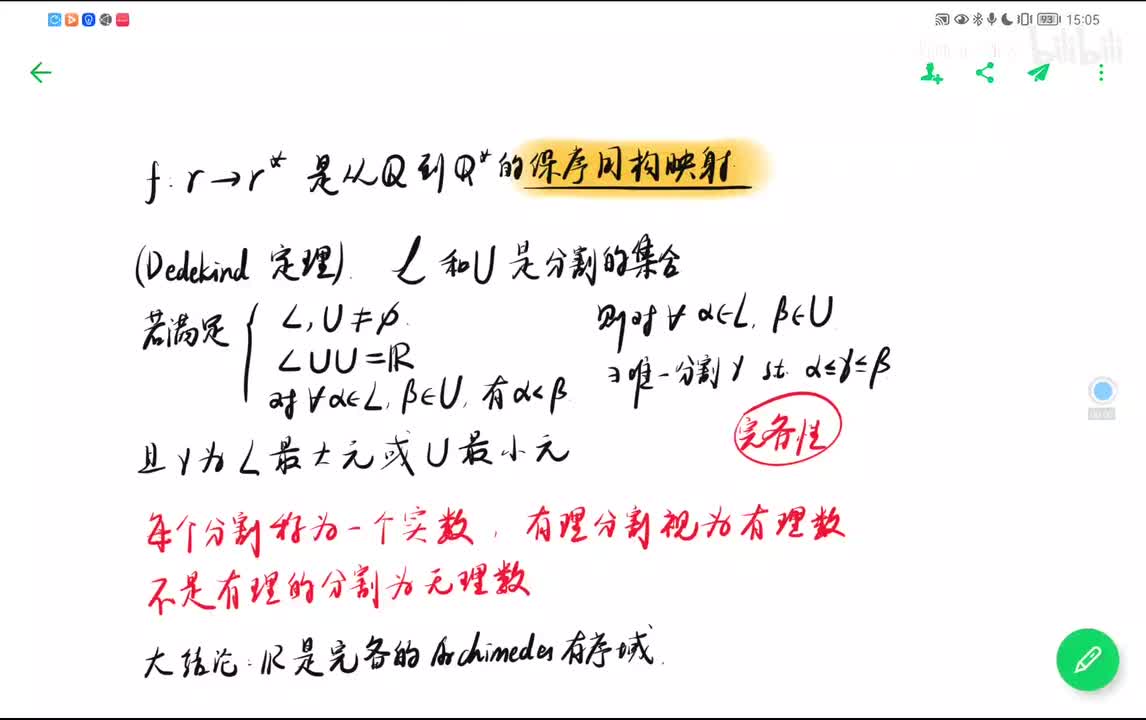 15:05
93
bilibili
f: r→r* 是从Q到Q*的保序同构映射.
(Dedekind 定理). L 和 U 是分割的集合
若满足 { L, U ≠ ∅.
L∪U=ℝ
对∀α∈L, β∈U, 有α<β
则对∀ α∈L, β∈U
∃唯一分割γ st. α≤γ≤β
完备性
且γ为L最大元或U最小元
每个分割称为一个实数, 有理分割视为有理数
不是有理的分割为无理数
大结论: ℝ是完备的Archimedes有序域.
00:00